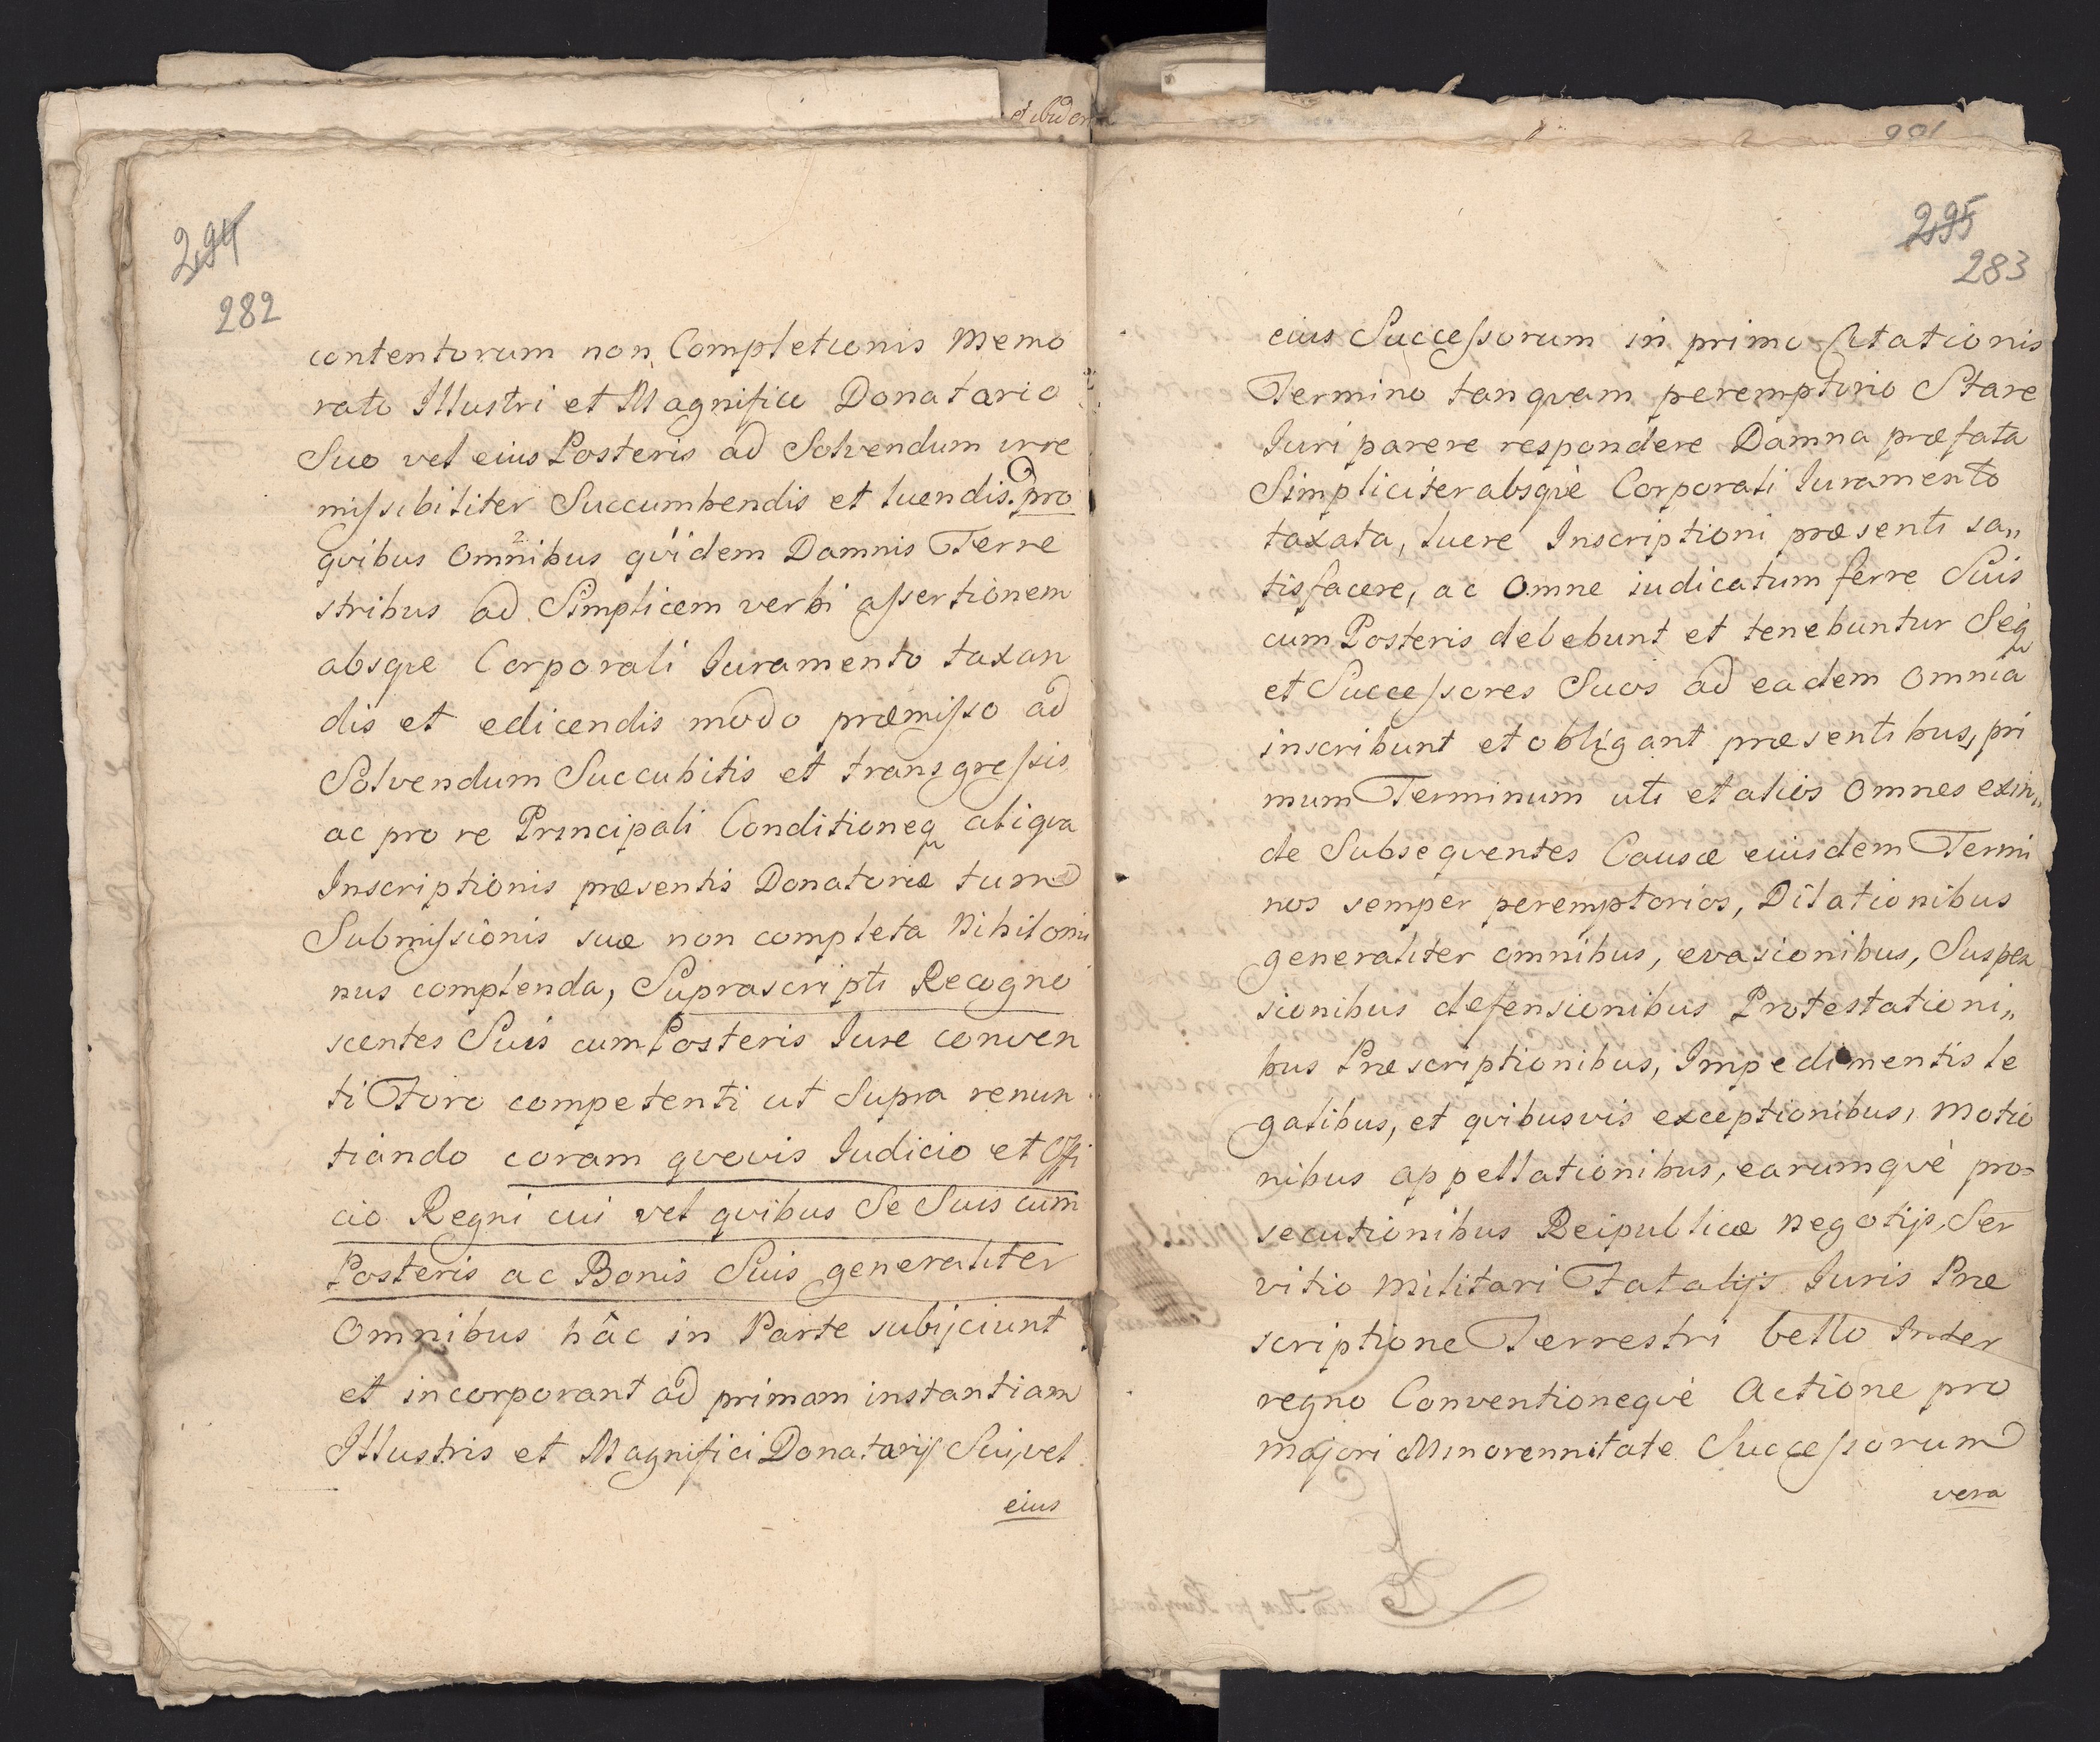 294
282
contentorum non Completionis Memo
rato Illustri et Magnifico Donatario
Suo vel eius Posteris ad Solvendum irre
miſsibiliter Succumbendis et luendis. pro
qvibus Omnibus qvidem Damnis Terre
stribus ad Simplicem verbi aſsertionem
absqve Corporali Iuramento taxan
dis et edicendis modo præmiſso ad
Solvendum Succubitis et transgreſsis
ac pro re Principali Conditioneq aliqva
Inscriptionis præsentis Donatoriæ tum
Submiſsionis suæ non completa Nihilomi
nus complenda, Suprascripti Recogno
scentes Suis cum Posteris Iure conven
ti Foro competenti ut Supra renun
tiando coram qvovis Iudicio et Offi
cio Regni cui vel qvibus Se Suis cum
Posteris ac Bonis Suis generaliter
Omnibus hâc in Parte subijciunt
et incorporant ad primam instantiam
Illustris et Magnifici Donatarij Sui, vel
eius
901
295
283
eius Succeſsorum in primo Citationis
Termino tanqvam peremptorio Stare
Iuri parere respondere Damna præfata
Simpliciter absqvè Corporali Iuramento
taxata, luere Inscriptioni præsenti sa„
tisfacere, ac Omne iudicatum ferre Suis
cum Posteris debebunt et tenebuntur Seq
et Succeſsores Suos ad eadem Omnia
inscribunt et obligant præsentibus, pri
mum Terminum uti et alios Omnes exin„
de Subseqventes Causæ eiusdem Termi
nos semper peremptorios, Dilationibus
generaliter omnibus, evasionibus, Suspen
sionibus defensionibus Protestationi„
bus Præscriptionibus, Impedimentis le
galibus, et qvibusvis exceptionibus, Motio
nibus appellationibus, earumqvè pro=
secutionibus Reipublicæ Negotijs, Ser
vitio Militari Fatalijs Iuris Præ
scriptione Terrestri bello Inter
regno Conventioneqvè Actione pro
majori Minorennitate Succeſsorum
vera